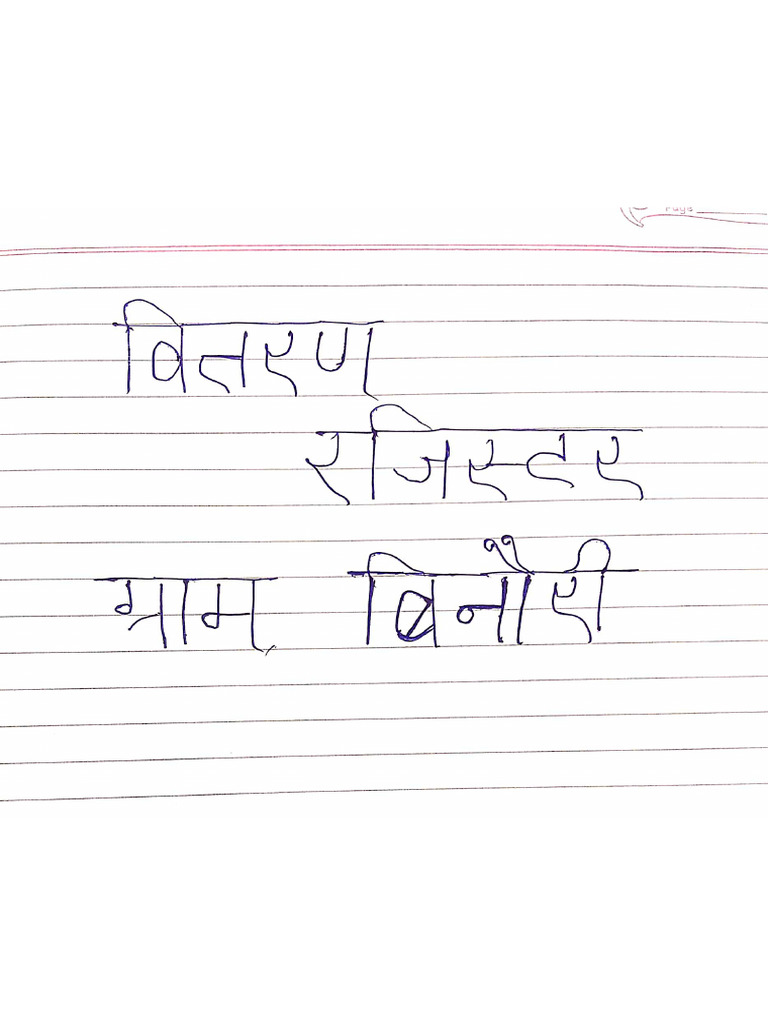 Page
वितरण
रजिस्टर
ग्राम बिनौरी